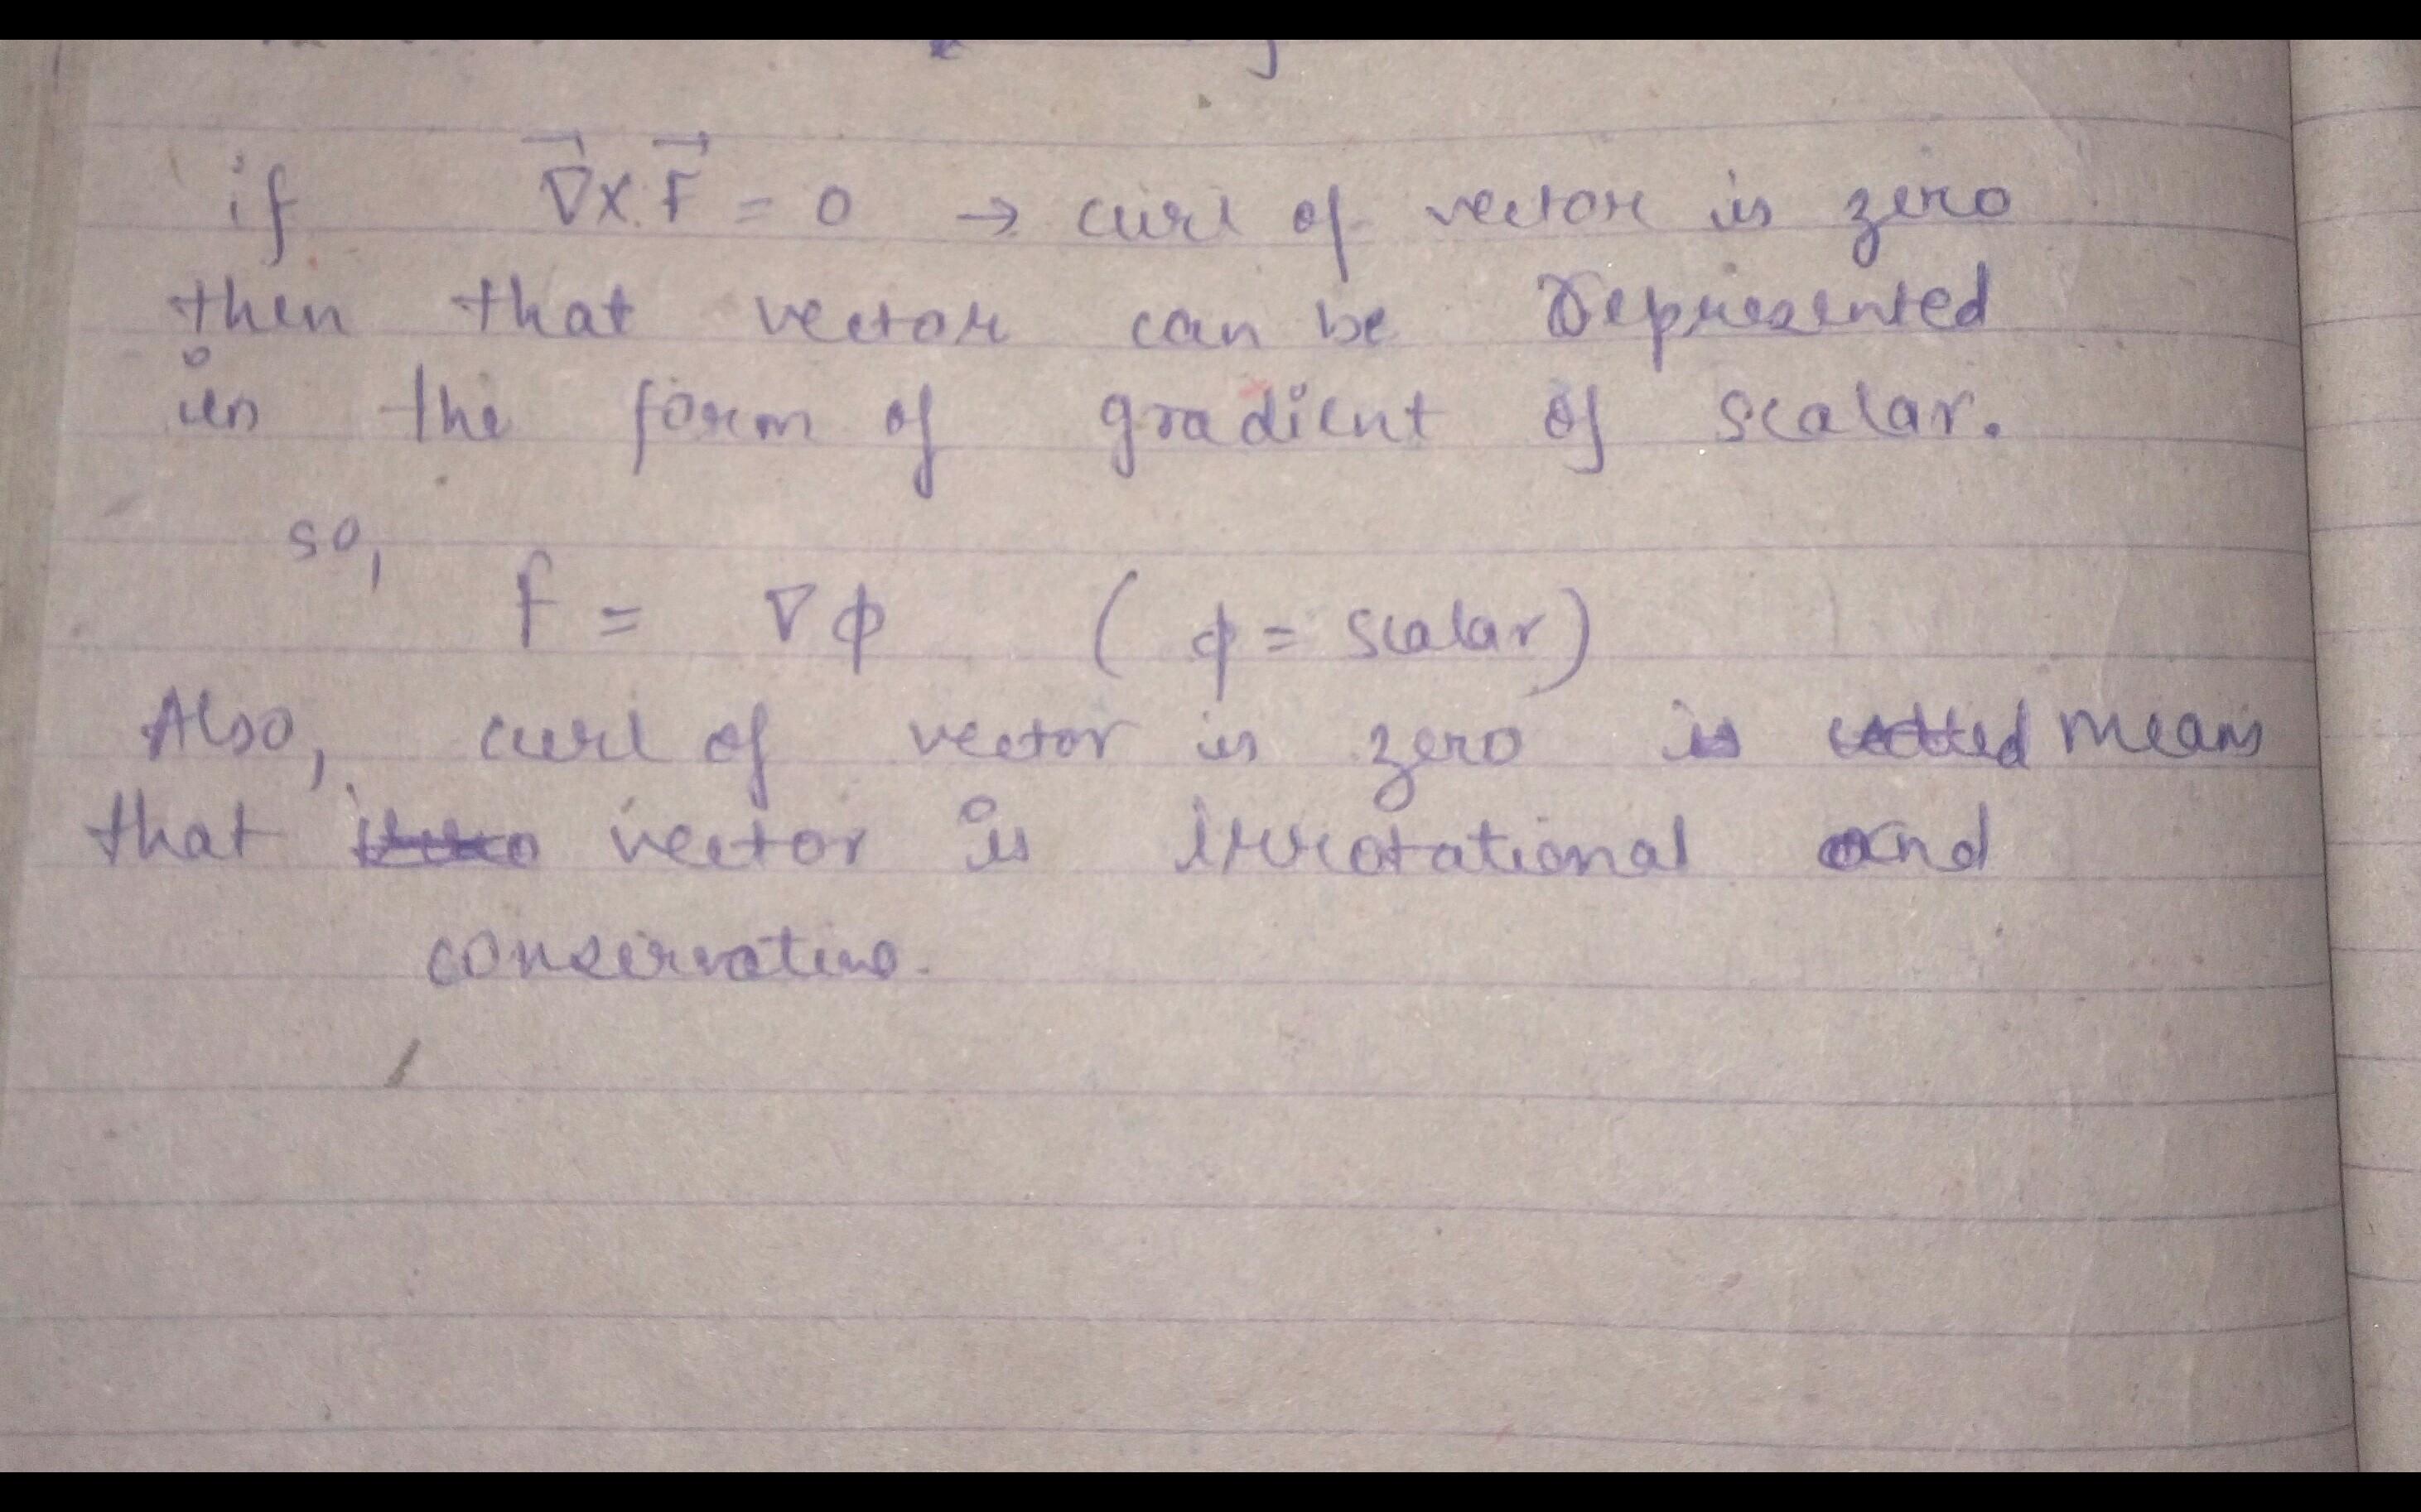 if ∇⃗ × F⃗ = 0 → curl of vector is zero
then that vector can be represented
in the form of gradient of scalar.
so,
F = ∇ϕ (ϕ = scalar)
Also, curl of vector is zero is means
that vector is irrotational and
conservative.